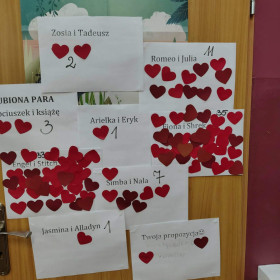 Zosia i Tadeusz
2
Romeo i Julia
11
UBIONA PARA
pciuszek i książę
3
Arielka i Eryk
1
Fiona i Shrek
35
Angel i Stitch
Simba i Nala
7
Jasmina i Alladyn
1
Twoja propozycja!!